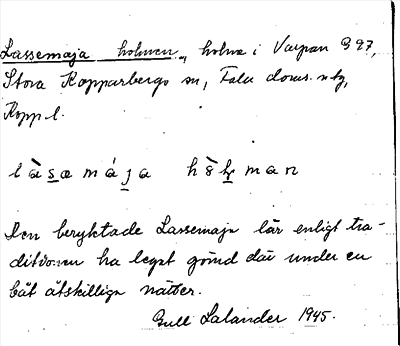 Lassemaja holmen, holme i Varpan B 97,
Stora Kopparbergs sn, Falu doms. n tg,
Kopp. l.
l à s æ m á j a h ò l m a n
Den beryktade Lassemaja lär enligt tra-
ditionen ha legat gömd där under en
båt åtskilliga nätter.
Gull Lalander 1945.